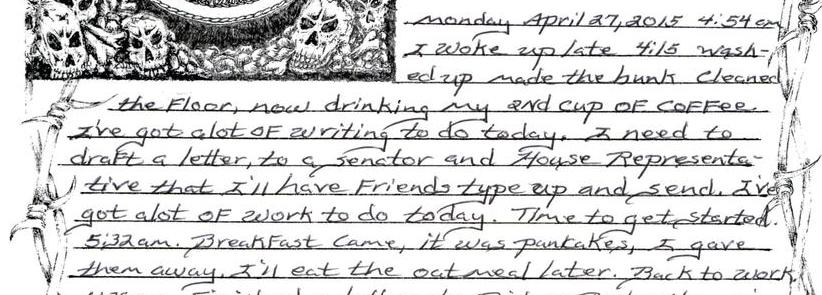 Monday April 27, 2015 4:54am
I woke up late 4:15 wash-
ed up made the bunk Cleaned
the Floor, now drinking my 2nd cup OF COFFee.
I've got alot OF writing to do today. I need to
draft a letter, to a senator and House Representa-
tive that I'll have Friends type up and send. I've
got alot OF work to do today. Time to get started.
5:32am. BreakFast Came, it was pankakes, I gave
them away. I'll eat the oatmeal later. Back to work.